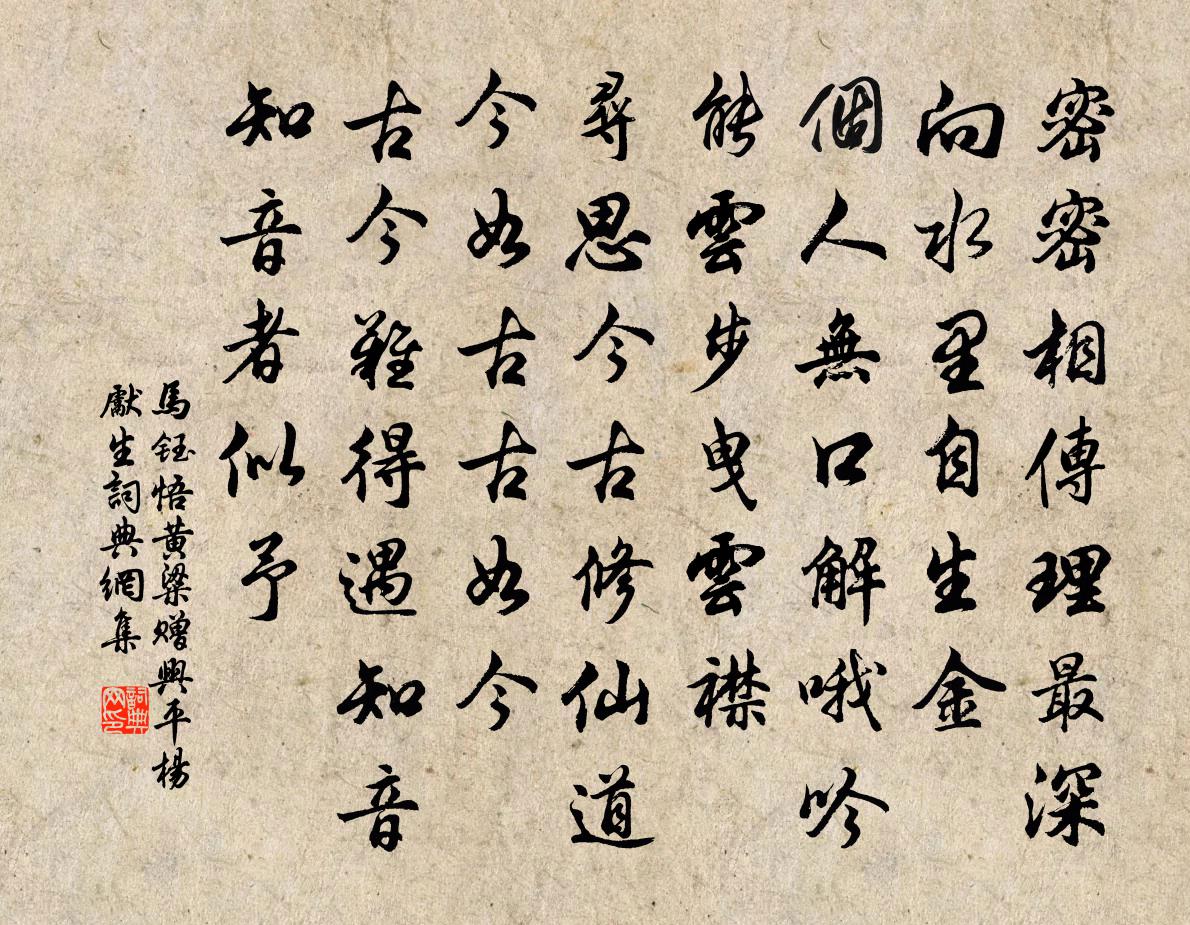 密密相傳理最深
向水里自生金
個人無口解哦吟
能雲步曳雲襟
尋思今古修仙道
今如古古如今
古今難得遇知音
知音者似予
馬鈺悟黃粱贈興平楊
獻生詞典網集
詞典
网印